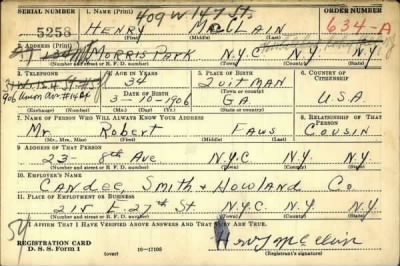 SERIAL NUMBER 1. NAME (Print) 409 W 147 St. ORDER NUMBER
5258 HENRY McCLAIN 634-A
(First) (Middle) (Last)
2. ADDRESS (Print)
MORRIS PARK N.Y.C N.Y. N.Y.
(Number and street or R. F. D. number) (Town) (County) (State)
3. TELEPHONE 4. AGE IN YEARS 5. PLACE OF BIRTH 6. COUNTRY OF CITIZENSHIP
34 QUITMAN
906 Union Av. DATE OF BIRTH (Town or county)
3-10-1906 GA. U.S.A.
(Mo.) (Day) (Yr.) (State or country)
7. NAME OF PERSON WHO WILL ALWAYS KNOW YOUR ADDRESS 8. RELATIONSHIP OF THAT PERSON
Mr. Robert Faws Cousin
(Mr., Mrs., Miss) (First) (Middle) (Last)
9. ADDRESS OF THAT PERSON
23- 8th Ave N.Y.C. N.Y. N.Y.
(Number and street or R. F. D. number) (Town) (County) (State)
10. EMPLOYER'S NAME
CANDEE, SMITH & HOWLAND Co
11. PLACE OF EMPLOYMENT OR BUSINESS
215 E. 27th St N.Y.C. N.Y. N.Y.
(Number and street or R. F. D. number) (Town) (County) (State)
I AFFIRM THAT I HAVE VERIFIED ABOVE ANSWERS AND THAT THEY ARE TRUE.
54
REGISTRATION CARD
D. S. S. Form 1 16-17105 Henry McClain
(Registrant's signature)